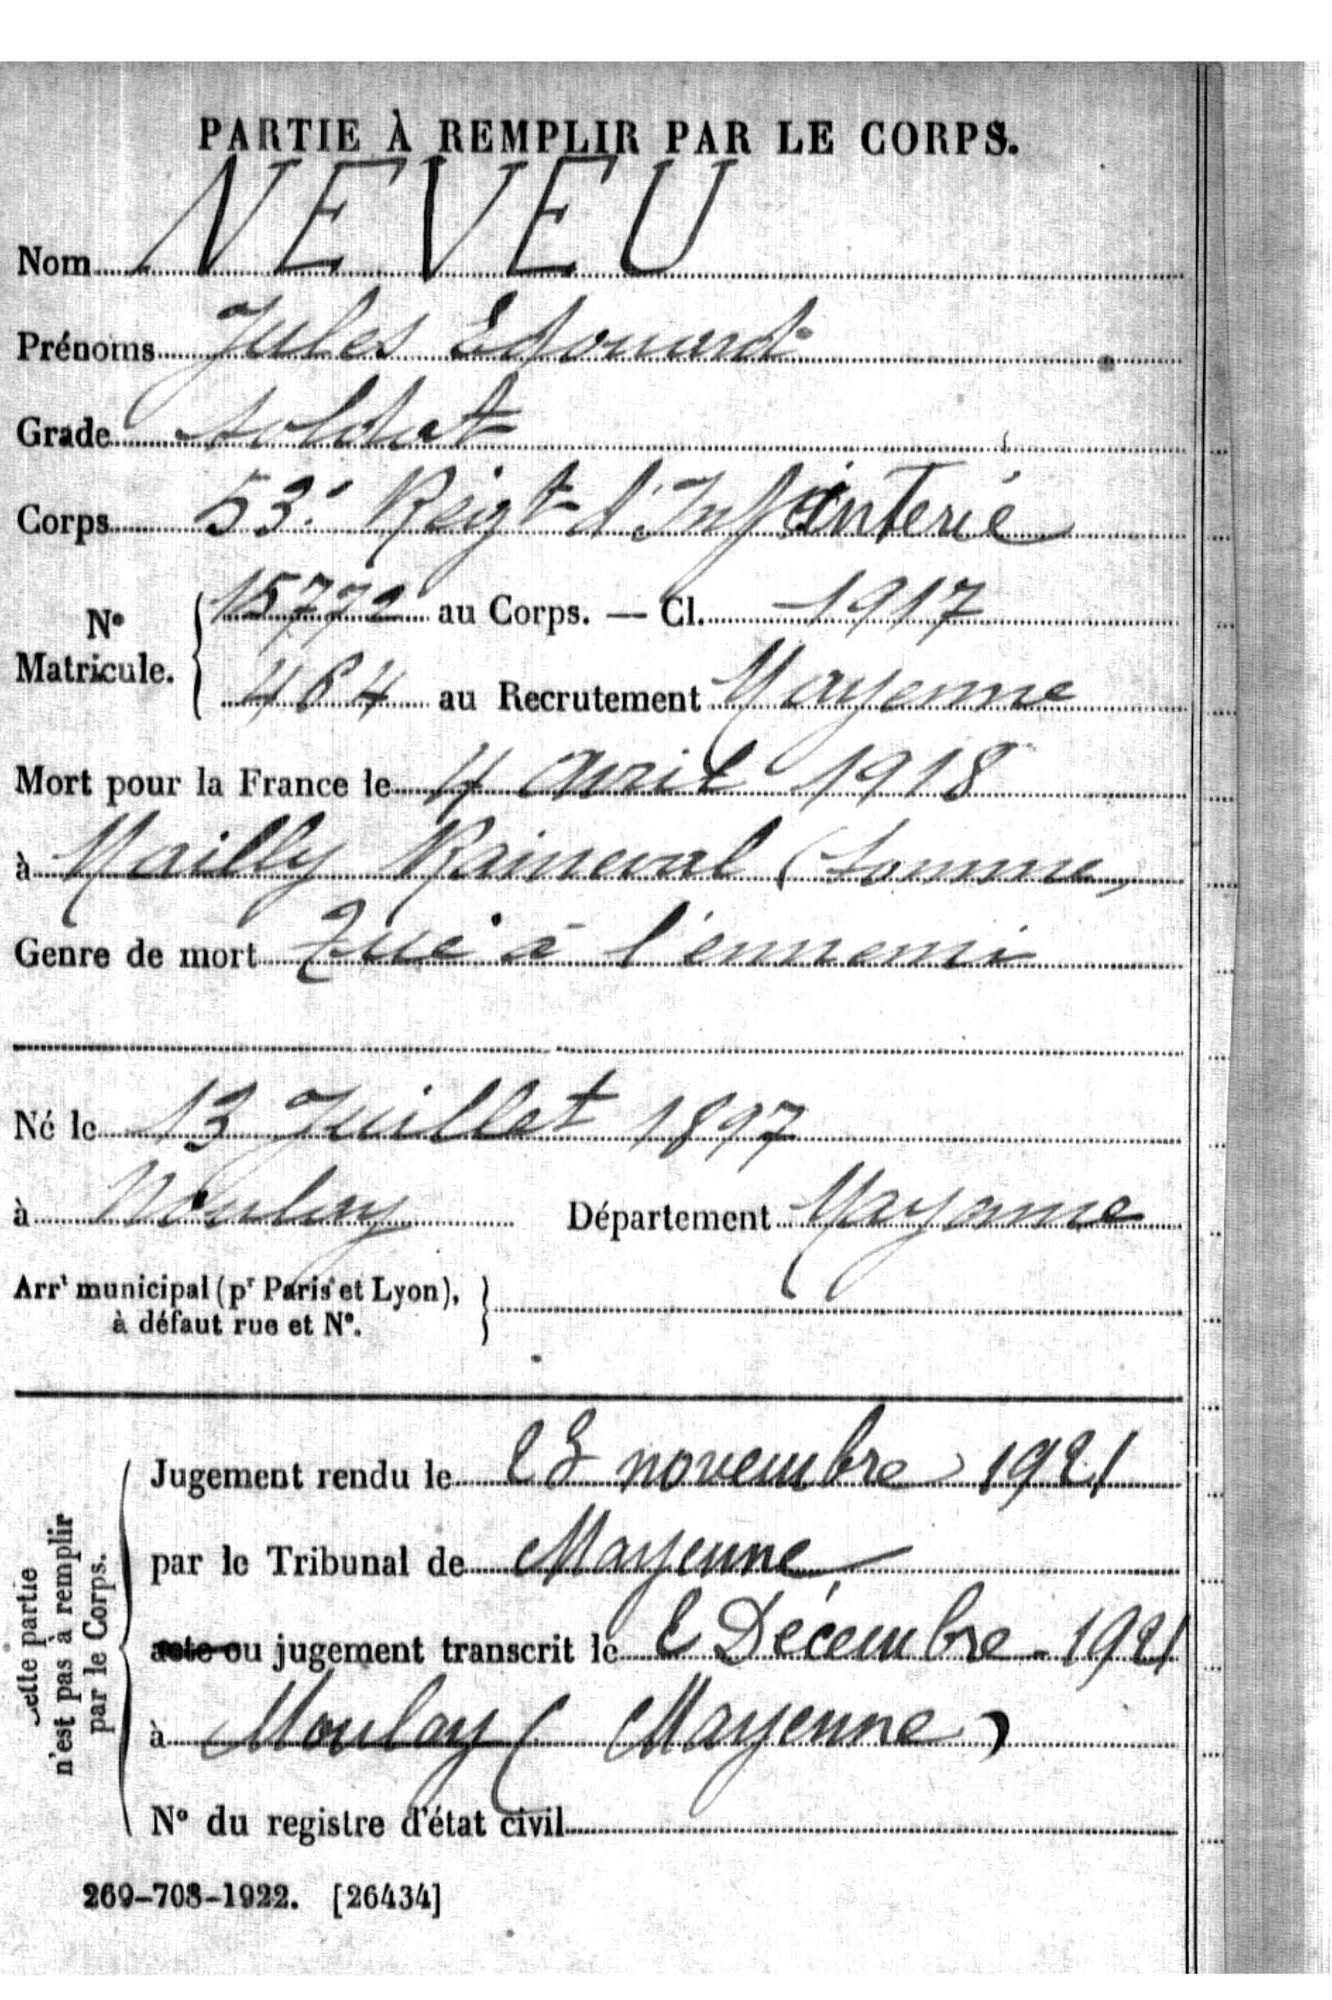 PARTIE À REMPLIR PAR LE CORPS.
Nom NEVEU
Prénoms Jules Edouard
Grade soldat
Corps 53e Régt d'Infanterie
No Matricule. { 15772 au Corps. — Cl. 1917
464 au Recrutement Mayenne
Mort pour la France le 4 avril 1918
à Mailly Raineval (Somme,
Genre de mort Tué à l'ennemi
Né le 13 Juillet 1897
à Moulay Département Mayenne
Arrt municipal (pr Paris et Lyon), }
à défaut rue et No.
Cette partie n'est pas à remplir par le Corps.
Jugement rendu le 23 novembre 1921
par le Tribunal de Mayenne
acte ou jugement transcrit le 2 Décembre - 1921
à Moulay (Mayenne)
No du registre d'état civil
269-708-1922. [26434]